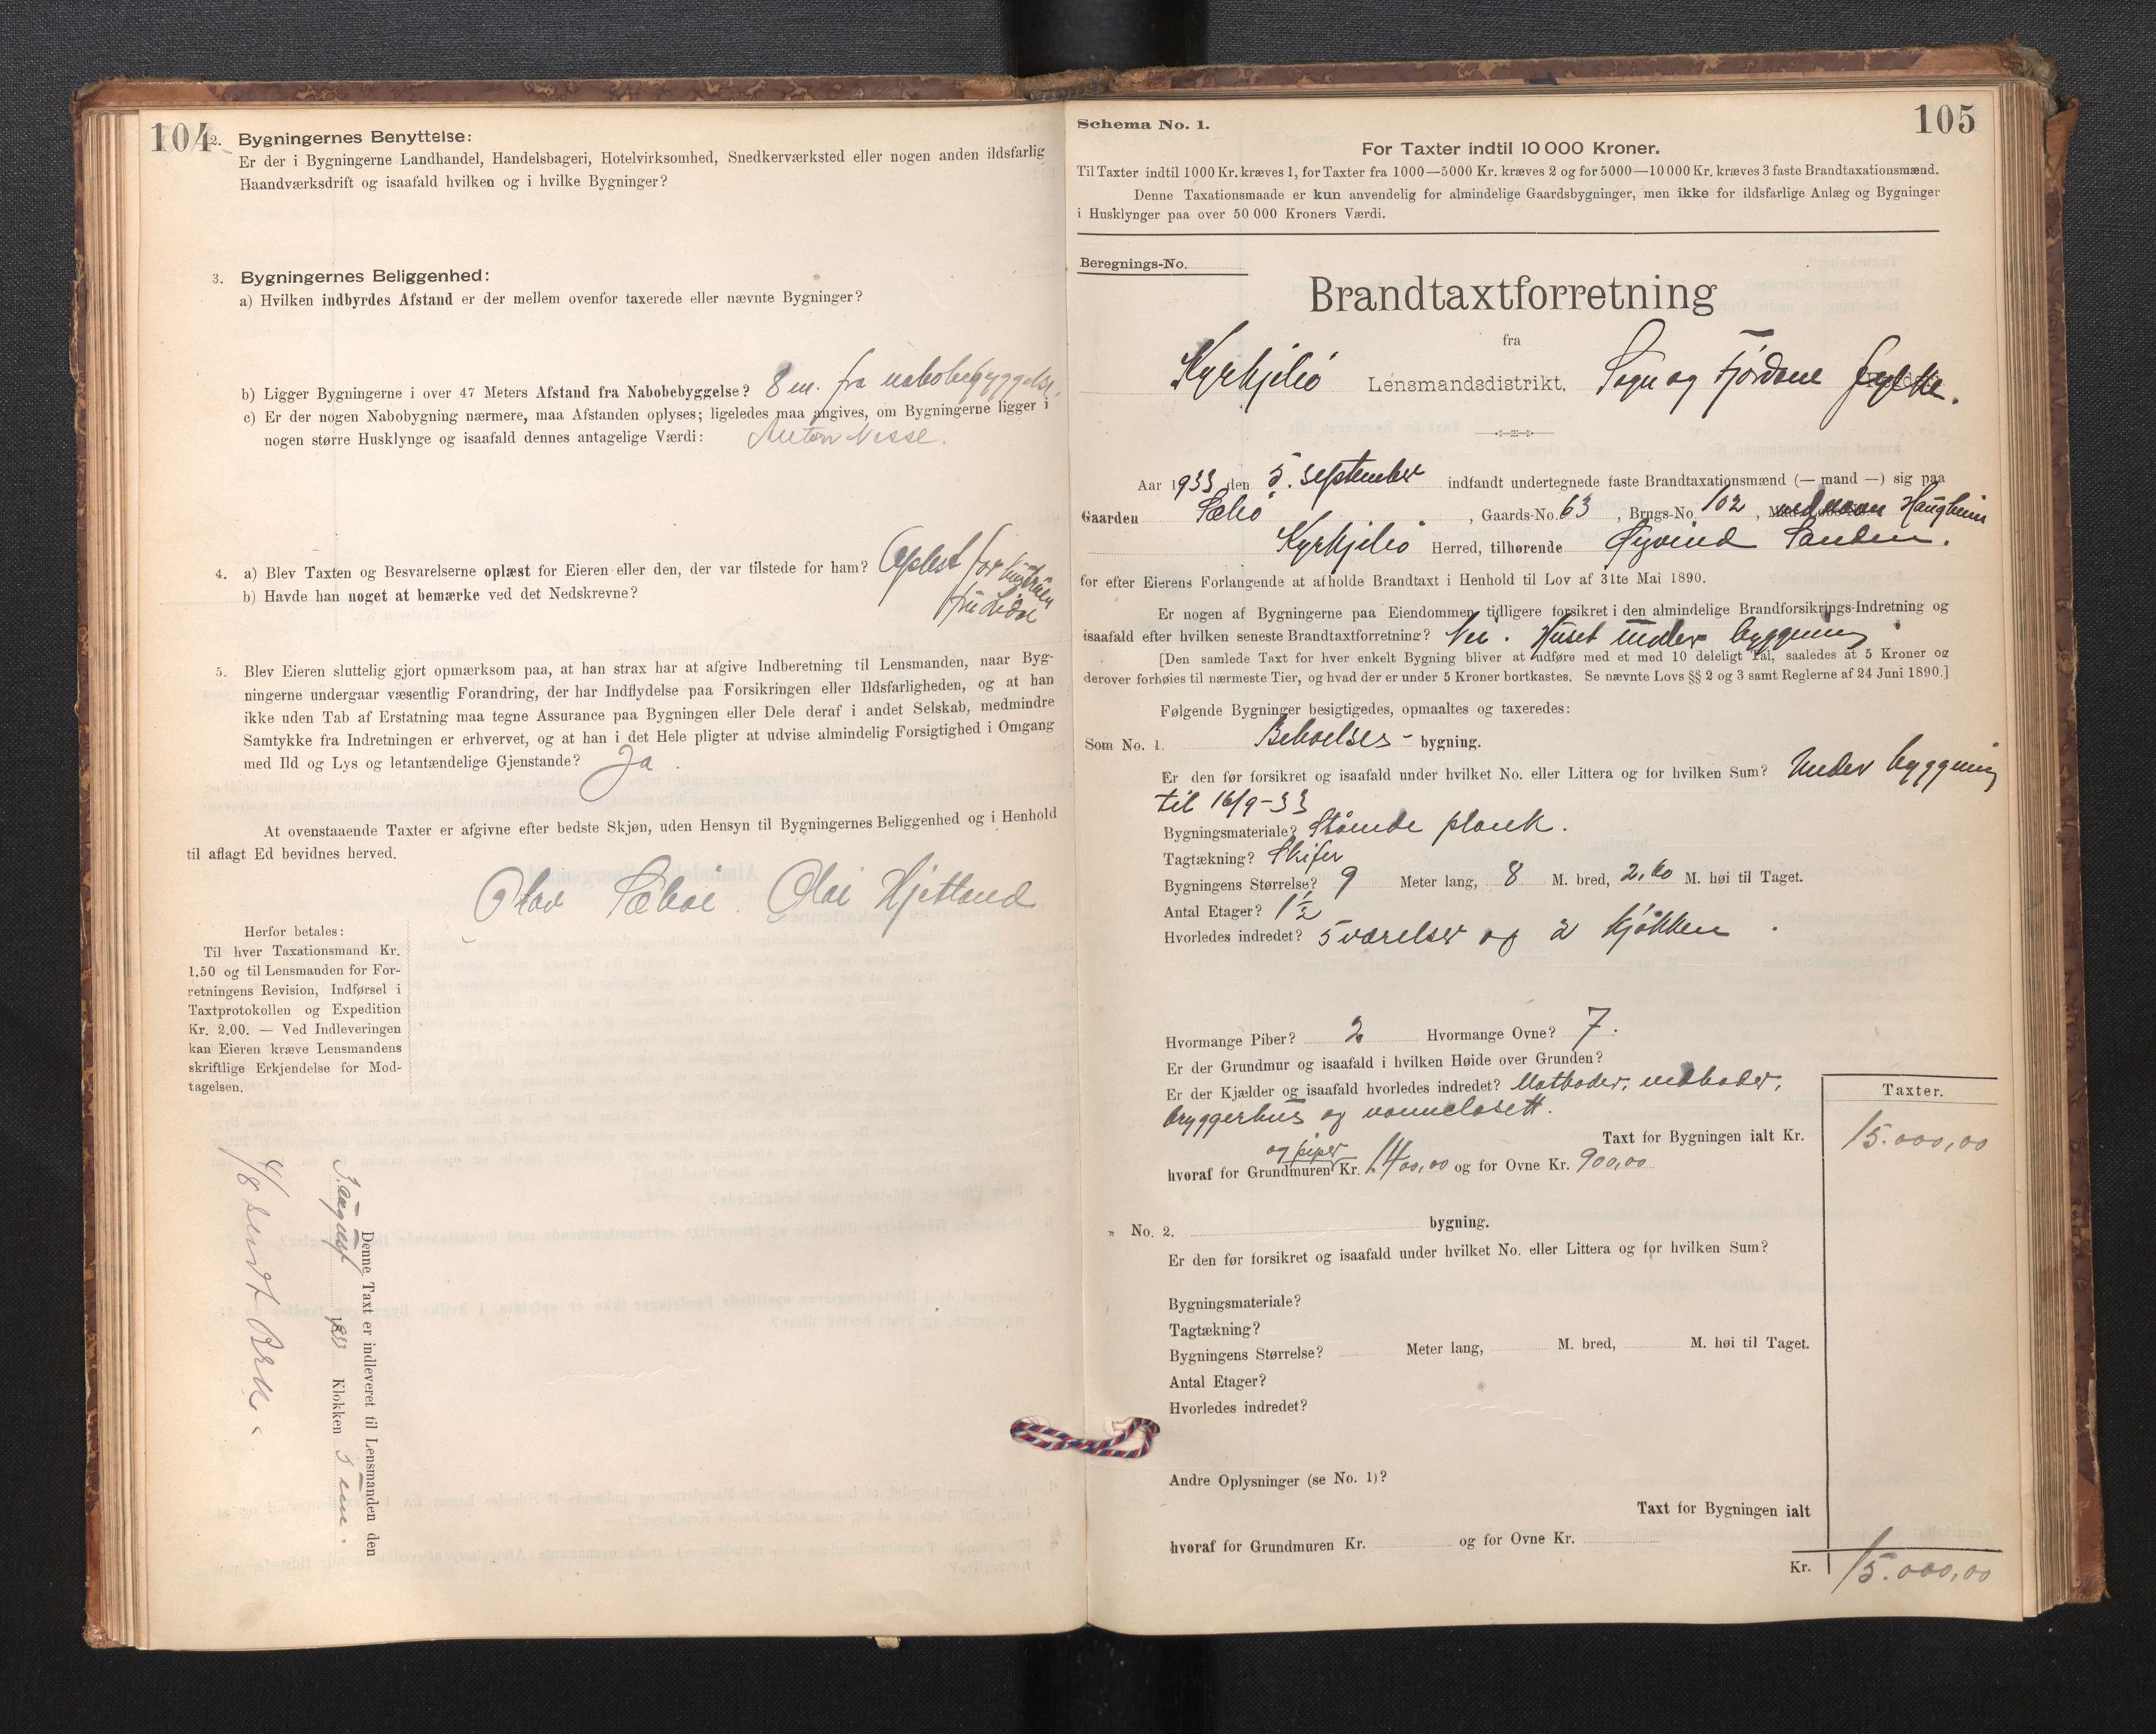 104
2. Bygningernes Benyttelse:
Er der i Bygningerne Landhandel, Handelsbageri, Hotelvirksomhed, Snedkerværksted eller nogen anden ildsfarlig
Haandværksdrift og isaafald hvilken og i hvilke Bygninger?
3. Bygningernes Beliggenhed:
a) Hvilken indbyrdes Afstand er der mellem ovenfor taxerede eller nævnte Bygninger?
b) Ligger Bygningerne i over 47 Meters Afstand fra Nabobebyggelse? 8 m. fra nabobebyggelse.
c) Er der nogen Nabobygning nærmere, maa Afstanden oplyses; ligeledes maa angives, om Bygningerne ligger i
nogen større Husklynge og isaafald dennes antagelige Værdi: Anton Nesse.
4. a) Blev Taxten og Besvarelserne oplæst for Eieren eller den, der var tilstede for ham? Oplest for
b) Havde han noget at bemærke ved det Nedskrevne?
5. Blev Eieren sluttelig gjort opmærksom paa, at han strax har at afgive Indberetning til Lensmanden, naar Byg-
ningerne undergaar væsentlig Forandring, der har Indflydelse paa Forsikringen eller Ildsfarligheden, og at han
ikke uden Tab af Erstatning maa tegne Assurance paa Bygningen eller Dele deraf i andet Selskab, medmindre
Samtykke fra Indretningen er erhvervet, og at han i det Hele pligter at udvise almindelig Forsigtighed i Omgang
med Ild og Lys og letantændelige Gjenstande? Ja.
At ovenstaaende Taxter er afgivne efter bedste Skjøn, uden Hensyn til Bygningernes Beliggenhed og i Henhold
til aflagt Ed bevidnes herved.
Olav Sæbøe. Olai Hjetland
Herfor betales:
Til hver Taxationsmand Kr.
1.50 og til Lensmanden for For-
retningens Revision, Indførsel i
Taxtprotokollen og Expedition
Kr. 2.00. — Ved Indleveringen
kan Eieren kræve Lensmandens
skriftlige Erkjendelse for Mod-
tagelsen.
Denne Taxt er indleveret til Lensmanden den
1933 Klokken 5 em.
sendt
105
Schema No. 1.
For Taxter indtil 10 000 Kroner.
Til Taxter indtil 1000 Kr. kræves 1, for Taxter fra 1000—5000 Kr. kræves 2 og for 5000—10 000 Kr. kræves 3 faste Brandtaxationsmænd.
Denne Taxationsmaade er kun anvendelig for almindelige Gaardsbygninger, men ikke for ildsfarlige Anlæg og Bygninger
i Husklynger paa over 50 000 Kroners Værdi.
Beregnings-No.
Brandtaxtforretning
fra
Kyrkjebø Lensmandsdistrikt, Sogn og Fjordane fylke.
Aar 1933 den 5. september indfandt undertegnede faste Brandtaxationsmænd (— mand —) sig paa
Gaarden Sæbø, Gaards-No. 63, Brugs-No. 102, Haugheim
Kyrkjebø Herred, tilhørende Øyvind Sanden.
for efter Eierens Forlangende at afholde Brandtaxt i Henhold til Lov af 31te Mai 1890.
Er nogen af Bygningerne paa Eiendommen tidligere forsikret i den almindelige Brandforsikrings-Indretning og
isaafald efter hvilken seneste Brandtaxtforretning? Nei. Huset under bygging
[Den samlede Taxt for hver enkelt Bygning bliver at udføre med et med 10 deleligt Tal, saaledes at 5 Kroner og
derover forhøies til nærmeste Tier, og hvad der er under 5 Kroner bortkastes. Se nævnte Lovs §§ 2 og 3 samt Reglerne af 24 Juni 1890.]
Følgende Bygninger besigtigedes, opmaaltes og taxeredes:
Som No. 1. Beboelses- bygning.
Er den før forsikret og isaafald under hvilket No. eller Littera og for hvilken Sum? Under bygging
til 16/9-33
Bygningsmateriale? Stående plank.
Tagtækning? Skifer
Bygningens Størrelse? 9 Meter lang, 8 M. bred, 2,60 M. høi til Taget.
Antal Etager? 1½
Hvorledes indredet? 5 værelser og 2 kjøkken.
Hvormange Piber? 2 Hvormange Ovne? 7.
Er der Grundmur og isaafald i hvilken Høide over Grunden?
Er der Kjælder og isaafald hvorledes indredet? Matboder, vedboder,
bryggerhus og vannclosett.
Taxter.
Taxt for Bygningen ialt Kr. 15.000,00
og piper
hvoraf for Grundmuren Kr. 1400,00 og for Ovne Kr. 900,00
„ No. 2. bygning.
Er den før forsikret og isaafald under hvilket No. eller Littera og for hvilken Sum?
Bygningsmateriale?
Tagtækning?
Bygningens Størrelse? Meter lang, M. bred, M. høi til Taget.
Antal Etager?
Hvorledes indredet?
Andre Oplysninger (se No. 1)?
Taxt for Bygningen ialt
hvoraf for Grundmuren Kr. og for Ovne Kr.
Kr. 15.000,00